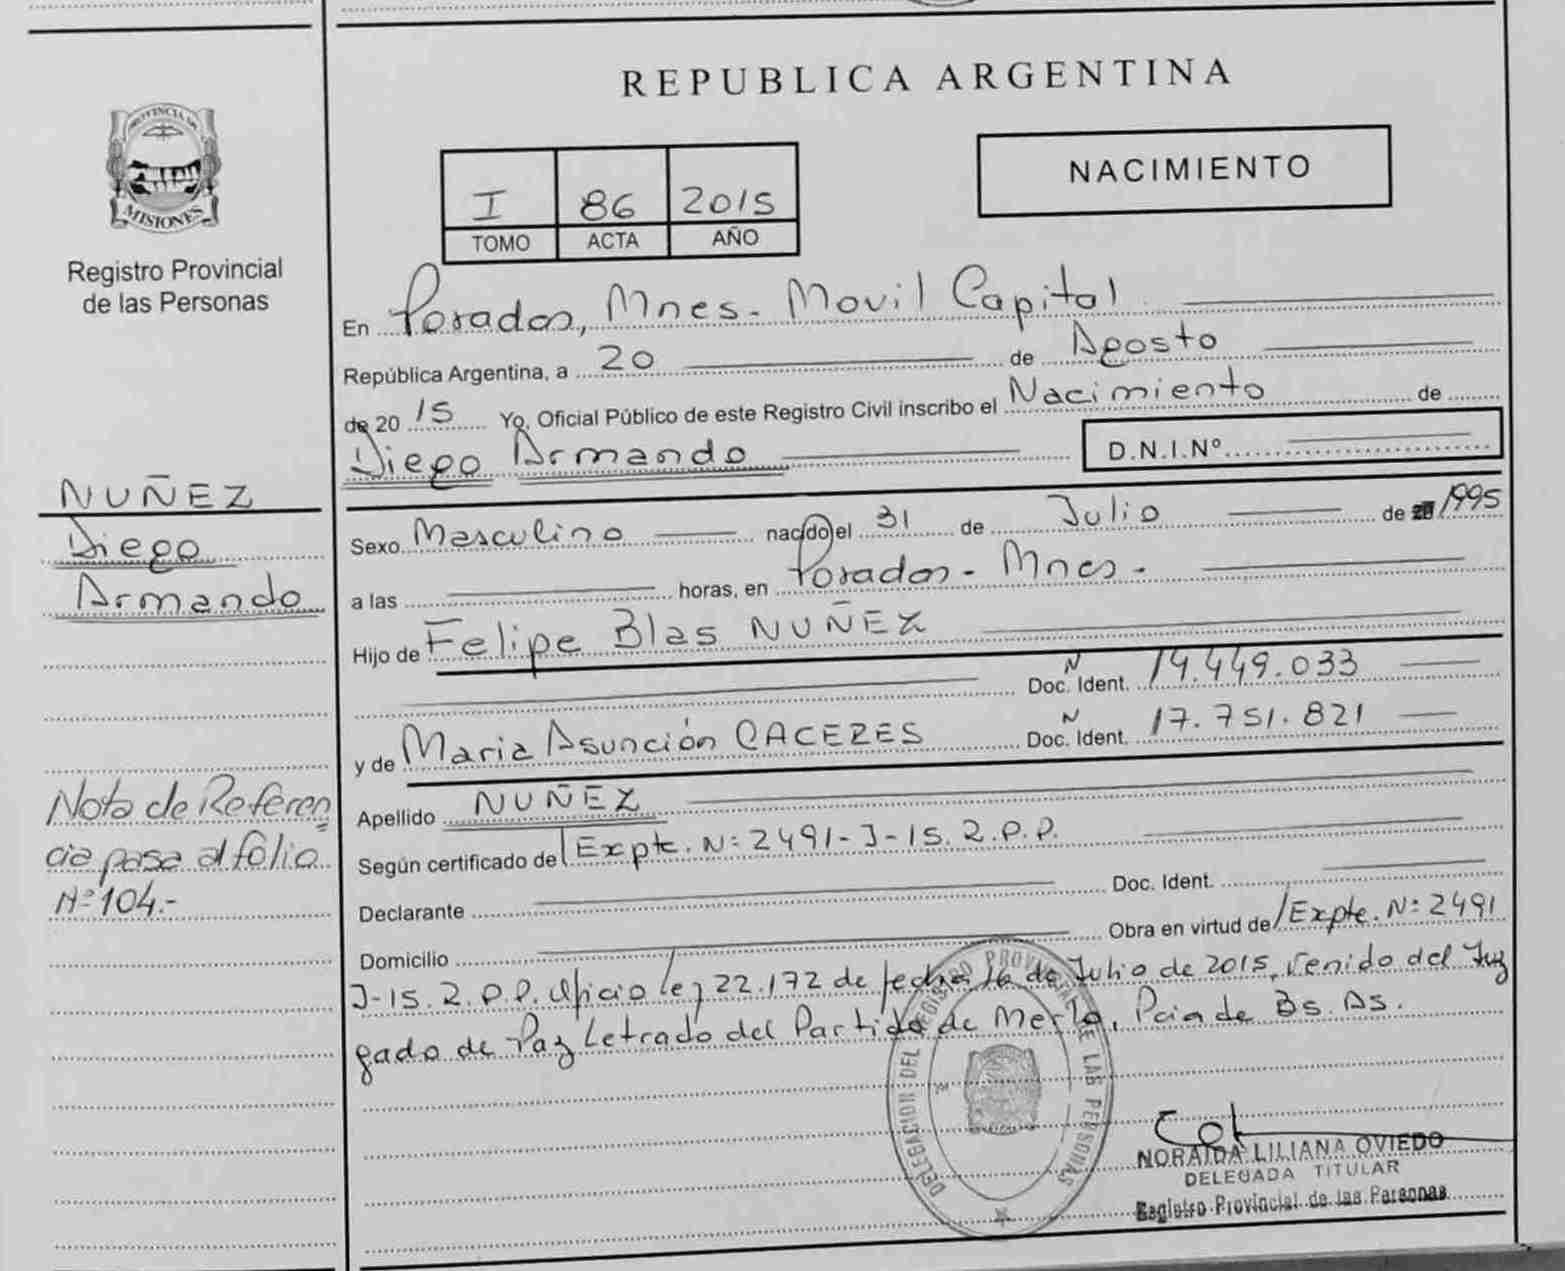 REPUBLICA ARGENTINA
PROVINCIA DE
MISIONES
Registro Provincial
de las Personas
I 86 2015
TOMO ACTA AÑO
NACIMIENTO
En Posadas, Mnes. Movil Capital
República Argentina, a 20 de Agosto
de 20 15 Yo, Oficial Público de este Registro Civil inscribo el Nacimiento de
Diego Armando D.N.I.Nº
NUÑEZ
Diego
Armando
Sexo Masculino nacido el 31 de Julio de 1995
a las horas, en Posadas - Mnes -
Hijo de Felipe Blas NUÑEZ
Doc. Ident. N 14.449.033
y de Maria Asunción CACERES Doc. Ident. N 17.751.821
Apellido NUÑEZ
Según certificado de Expte. Nº 2491-J-15. R.P.P.
Declarante Doc. Ident.
Domicilio Obra en virtud de Expte. Nº 2491
J-15. R.P.P. Oficio ley 22.172 de fecha 16 de Julio de 2015, venido del Juz
gado de Paz Letrado del Partido de Merlo, Pcia de Bs. As.
Nota de Referen
cia pasa al folio
Nº 104.-
DELEGACION DEL REGISTRO PROVINCIAL DE LAS PERSONAS
NORAIDA LILIANA OVIEDO
DELEGADA TITULAR
Registro Provincial de las Personas